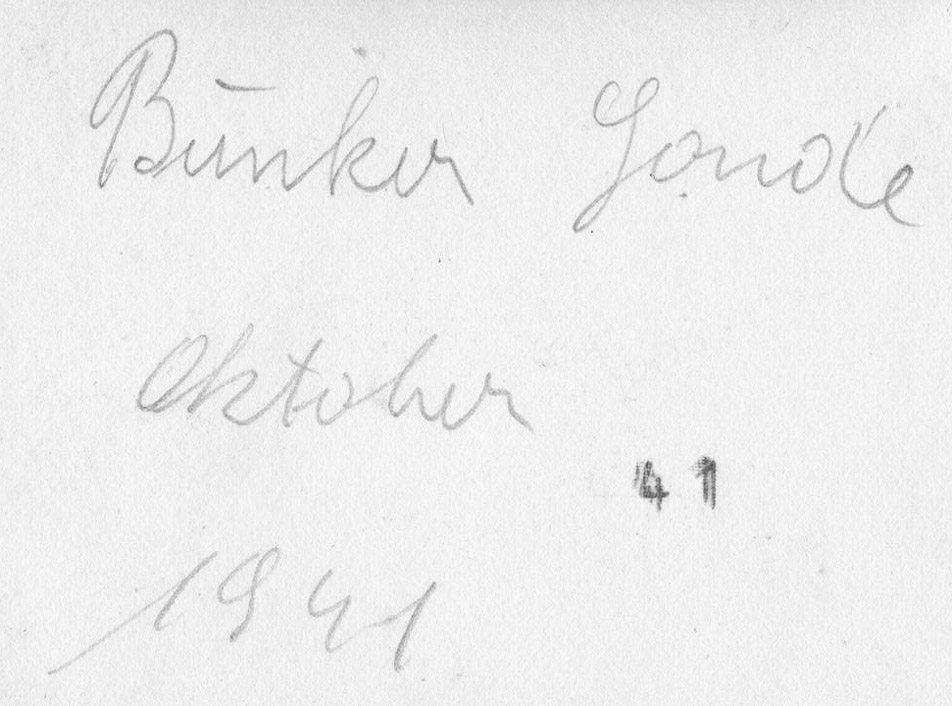 Bunker
Oktober
41
1941